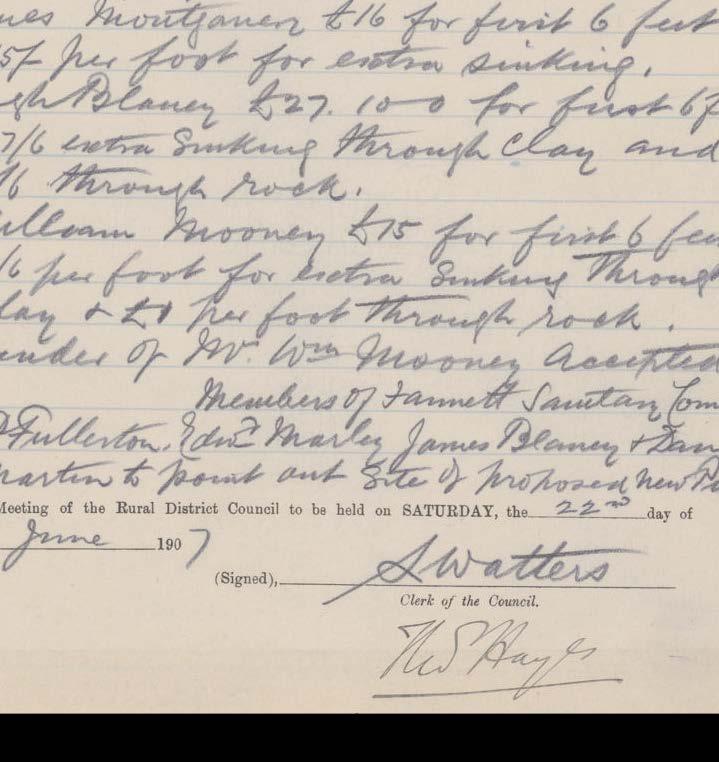 mes Montgomery £16 for first 6 feet
15/ per foot for extra sinking.
gh Blaney £27. 10-0 for first 6 f
7/6 extra Sinking through Clay and
/6 through rock.
illiam Mooney £15 for first 6 fee
/6 per foot for extra Sinking Through
lay & £1 per foot through rock.
ender of Mr. Wm Mooney Accepted
Members of Fannett Sanitary Com
Fullerton, Edwd Marley James Blaney & Dan
Martin to point out Site of proposed new Pu
Meeting of the Rural District Council to be held on SATURDAY, the 22nd day of
June 1907
(Signed), S Watters
Clerk of the Council.
Hayes